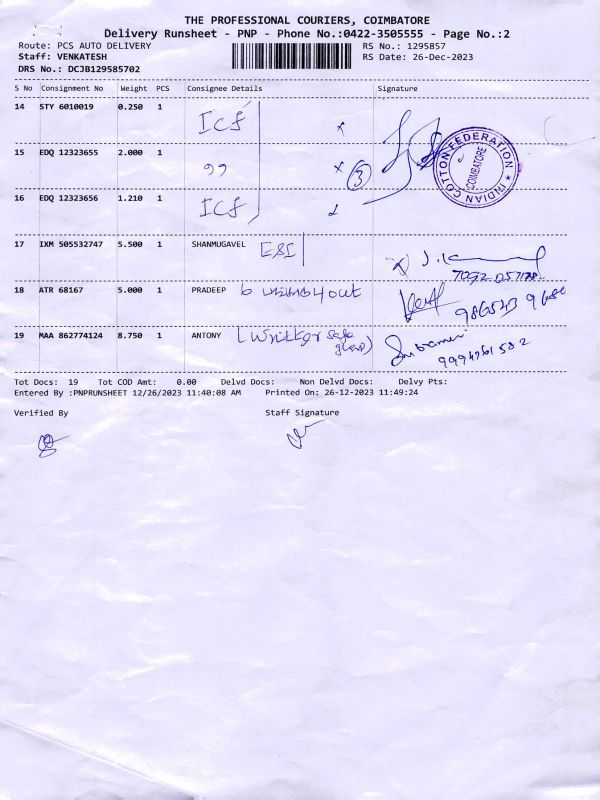 THE PROFESSIONAL COURIERS, COIMBATORE
Delivery Runsheet - PNP - Phone No.:0422-3505555 - Page No.:2
Route: PCS AUTO DELIVERY
RS No.: 1295857
Staff: VENKATESH
RS Date: 26-Dec-2023
DRS No.: DCJB129585702
S No Consignment No Weight PCS Consignee Details Signature
14 STY 6010019 0.250 1 ICF
15 EDQ 12323655 2.000 1 ,, 3
16 EDQ 12323656 1.210 1 ICF
INDIAN COTTON FEDERATION
COIMBATORE
17 IXM 505532747 5.500 1 SHANMUGAVEL ESI
18 ATR 68167 5.000 1 PRADEEP
19 MAA 862774124 8.750 1 ANTONY
9994761582
Tot Docs: 19 Tot COD Amt: 0.00 Delvd Docs: Non Delvd Docs: Delvy Pts:
Entered By :PNPRUNSHEET 12/26/2023 11:40:08 AM Printed On: 26-12-2023 11:49:24
Verified By Staff Signature